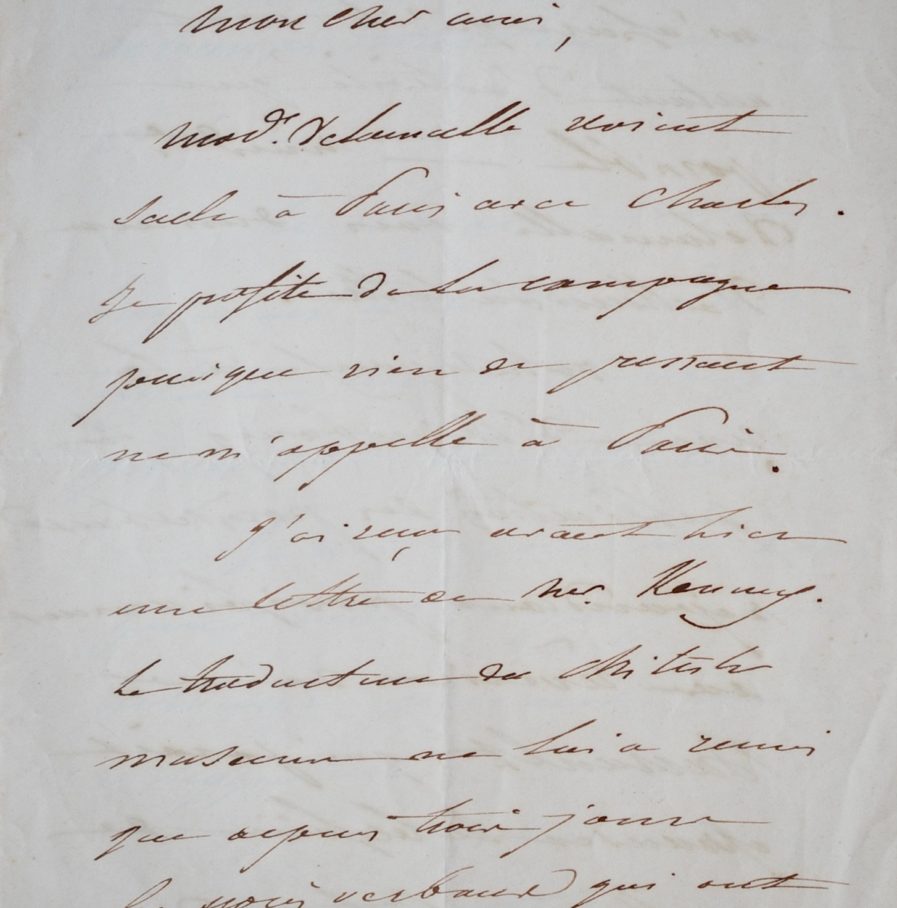 mon cher ami,
Mad^e. Delamalle revient
seule à Paris avec Charles.
Je profite de la campagne
puisque rien de pressant
ne m'appelle à Paris.
J'ai reçu avant hier
une lettre de Mr.
Le traducteur du British
museum ne lui a remis
que depuis trois jours
verbaux qui ont